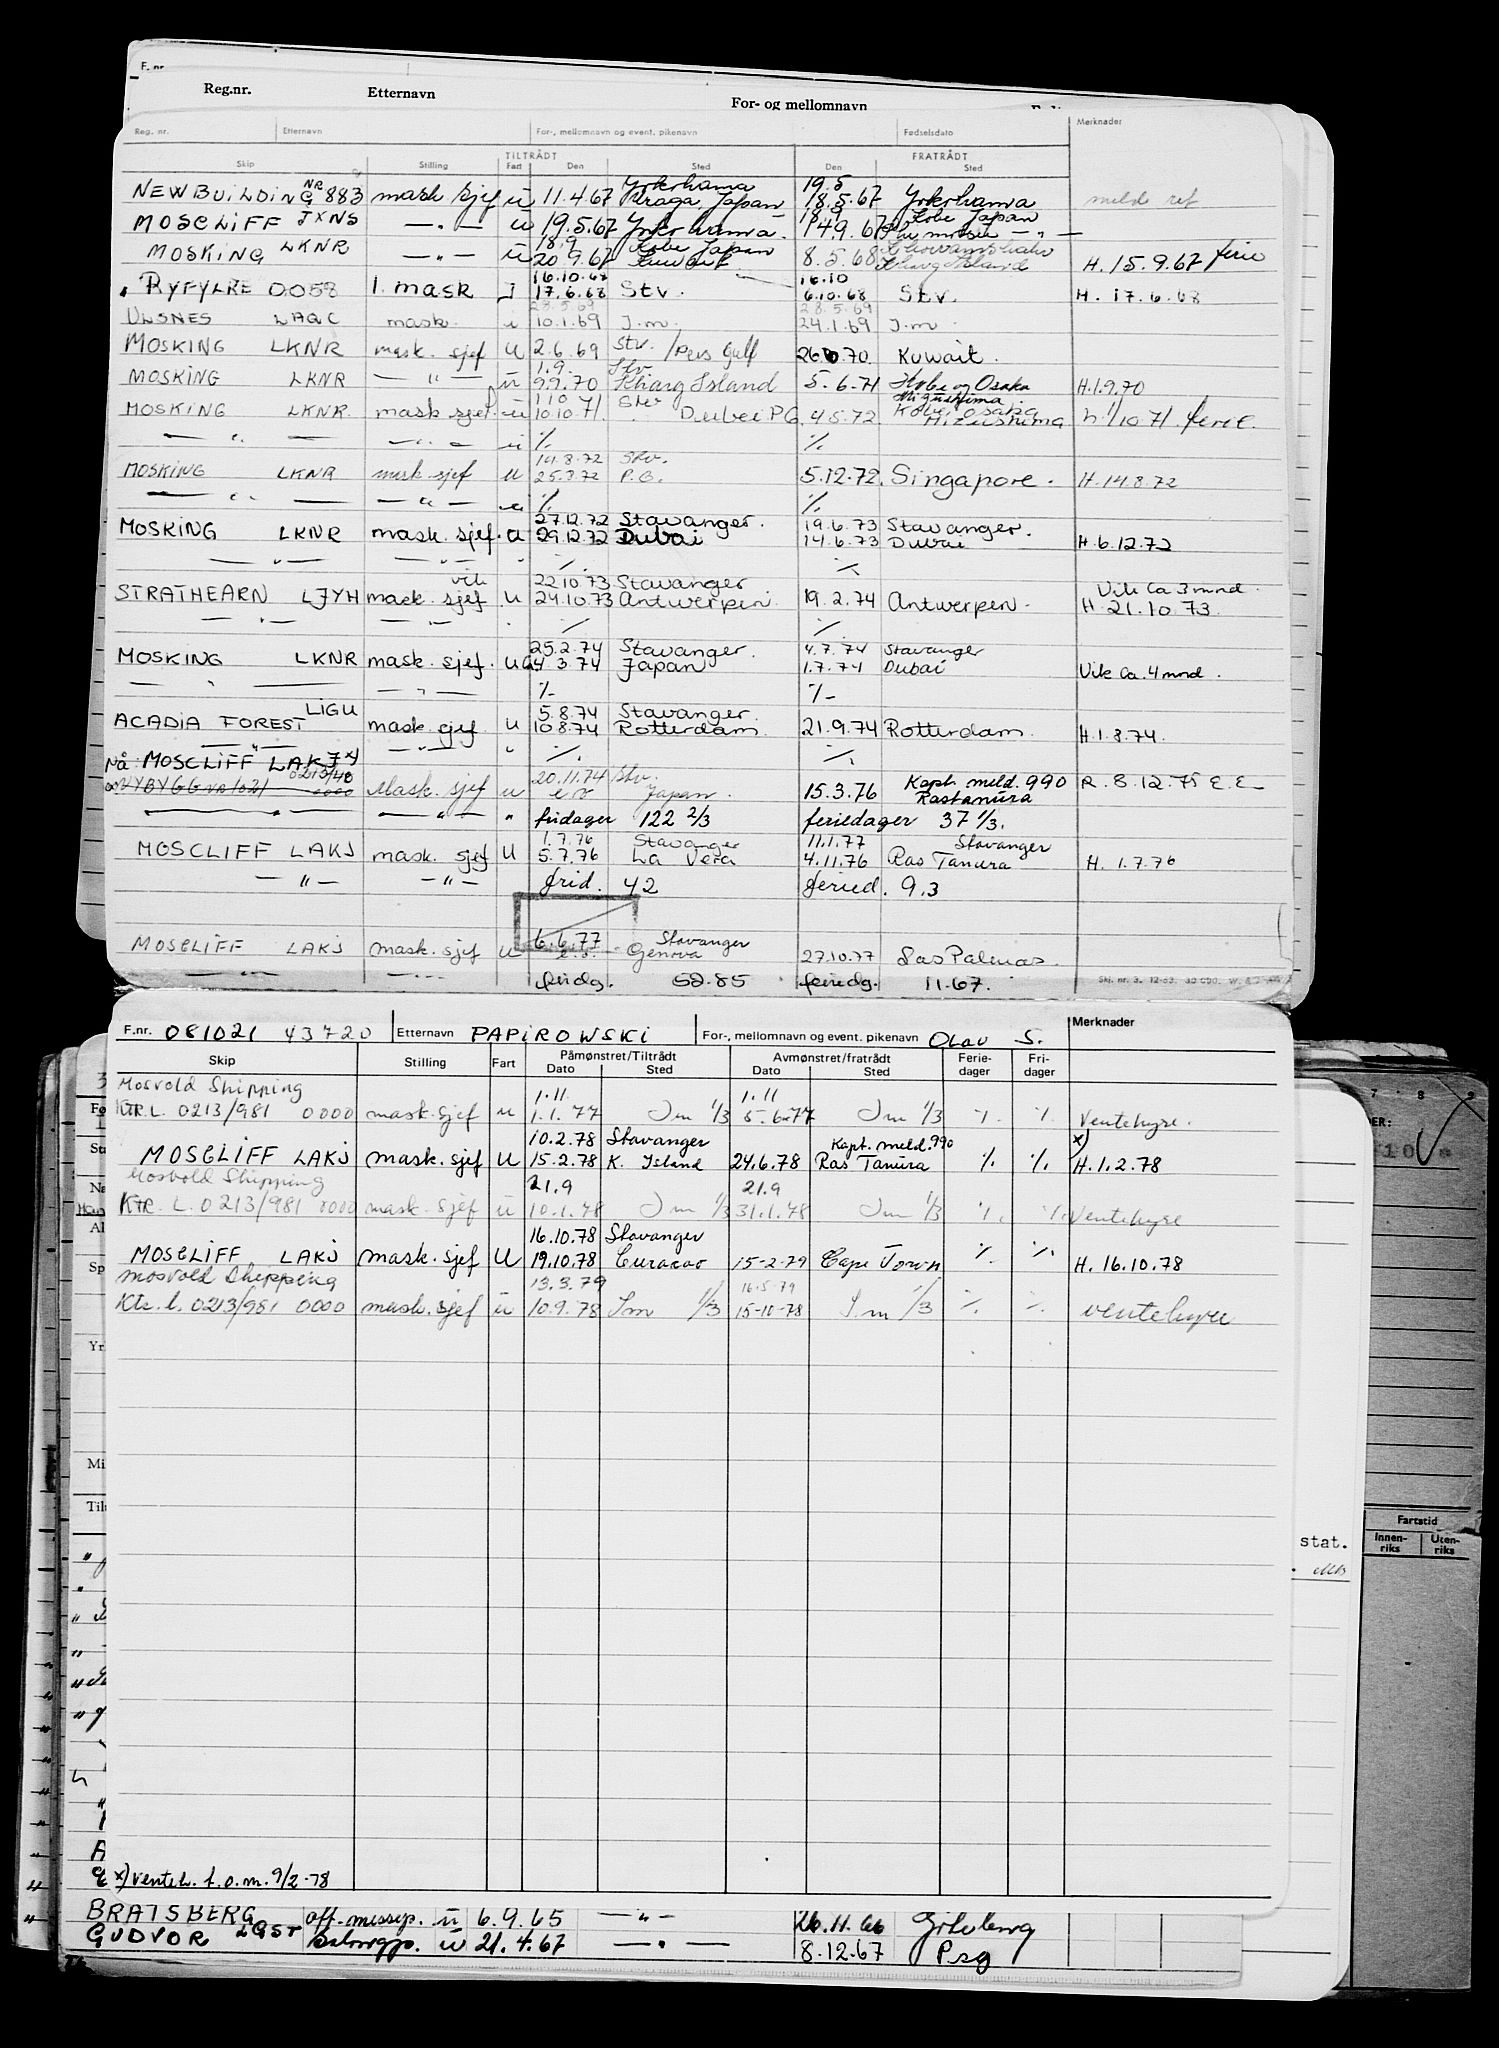 F. nr.
Reg.nr. Etternavn For- og mellomnavn
Reg. nr. Etternavn For-, mellomnavn og event. pikenavn Fødselsdato Merknader
TILTRÅDT FRATRÅDT
Skip Stilling Fart Den Sted Den Sted
NR Yokohama 19.5
NEWBUILDING 883 mask sjef u 11.4.67 Uraga, Japan 18.5.67 Yokohama meld ret
18.9 Kobe Japan
MOSCLIFF JXNS — " — u 19.5.67 Yokohama 14.9.67 — " —
18.9 Kobe Japan
MOSKING LKNR — " — u 20.9.67 8.5.68 Kharg Island H. 15.9.67 ferie
16.10.68 16.10
RYFYLKE 0058 1. mask I 17.6.68 Stv. 6.10.68 Stv. H. 17.6.68
28.5.69 28.5.69
ULSNES LAQC mask. i 10.1.69 I.m. 24.1.69 I.m.
MOSKING LKNR mask. sjef U 2.6.69 Stv. / Pers Gulf 26.6.70. Kuwait.
1.9. Stv
MOSKING LKNR — " — u 9.9.70 Kharg Island 5.6.71 Kobe og Osaka H.1.9.70
1.10 Stv Mizushima
MOSKING LKNR mask sjef. u 10.10.71. Dubai P.G. 4.5.72. Kobe, Osaka Mizushima h 1/10 71. ferie.
— " — — " — u % %
14.8.72 Stv.
MOSKING LKNR mask sjef u 25.8.72 P.G. 5.12.72. Singapore. H.14.8.72
— " — — " — u % %
27.12.72 Stavanger. 19.6.73 Stavanger.
MOSKING LKNR mask. sjef. u 29.12.72 Dubai 14.6.73 Dubai H.6.12.72
— " — — " — % %
vik 22.10.73 Stavanger Vik Ca 3 mnd.
STRATHEARN LJYH mask. sjef. u 24.10.73 Antwerpen. 19.2.74 Antwerpen. H. 21.10.73.
— " — — " — % %
25.2.74 Stavanger. 4.7.74 Stavanger
MOSKING LKNR mask. sjef. u 4.3.74 Japan 1.7.74 Dubai Vik Ca. 4 mnd.
— " — — " — % %
LIGU 5.8.74 Stavanger.
ACADIA FOREST mask. sjef. u 10.8.74 Rotterdam. 21.9.74 Rotterdam. H.1.8.74.
— " — — " — " % %
Nå: MOSCLIFF LAKJ x)
0213/40 20.11.74 Stv. Kapt. meld. 990
NYBYGG NR 1021 0000 Mask. sjef u Japan. 15.3.76 Rastanura R. 8.12.75 E.E.
— " — — " — " fridager 122 2/3 feriedager 37 1/3.
1.7.76 Stavanger 11.1.77 Stavanger
MOSCLIFF LAKJ mask. sjef U 5.7.76 La Vera 4.11.76 Ras Tanura H. 1.7.76
— " — — " — frid. 42 feried. 9.3
6.6.77 Stavanger
MOSCLIFF LAKJ mask. sjef U Genova 27.10.77 Las Palmas.
— " — — " — fridg. 52.85 feriedg. 11.67.
Skj. nr. 3. 12-63.
F.nr. 081021 43720 Etternavn PAPIROWSKI For-, mellomnavn og event. pikenavn Olav S. Merknader
Skip Stilling Fart Påmønstret/Tiltrådt Avmønstret/fratrådt Ferie- Fri-
Dato Sted Dato Sted dager dager
Mosvold Shipping 1.11. 1.11
Ktr. L. 0213/981 0000 mask. sjef u 1.1.77 I m 1/3 5.6.77 I m 1/3 % % Ventehyre.
10.2.78 Stavanger Kapt. meld. 990 x)
MOSCLIFF LAKJ mask. sjef U 15.2.78 K. Island 24.6.78 Ras Tanura % % H. 1.2.78
Mosvold Shipping 21.9 21.9
Ktr. L. 0213/981 0000 mask. sjef u 10.1.78 I m 1/3 31.1.78 I m 1/3 % % Ventehyre
16.10.78 Stavanger
MOSCLIFF LAKJ mask. sjef U 19.10.78 Curacao 15-2-79 Cape Town % % H. 16.10.78
Mosvold Shipping 13.3.79 16.5.79
Ktr. l. 0213/981 0000 mask. sjef u 10.9.78 I m 1/3 15-10-78 I. m 1/3 % % ventehyre
x) venteh. t.o.m. 9/2-78
BRATSBERG off. messep. u 6.9.65 — " — 26.11.66 Göteborg
GUDVOR LGST u 21.4.67 — " — 8.12.67 Psg
Fartstid
Innen- Uten-
riks riks
stat.